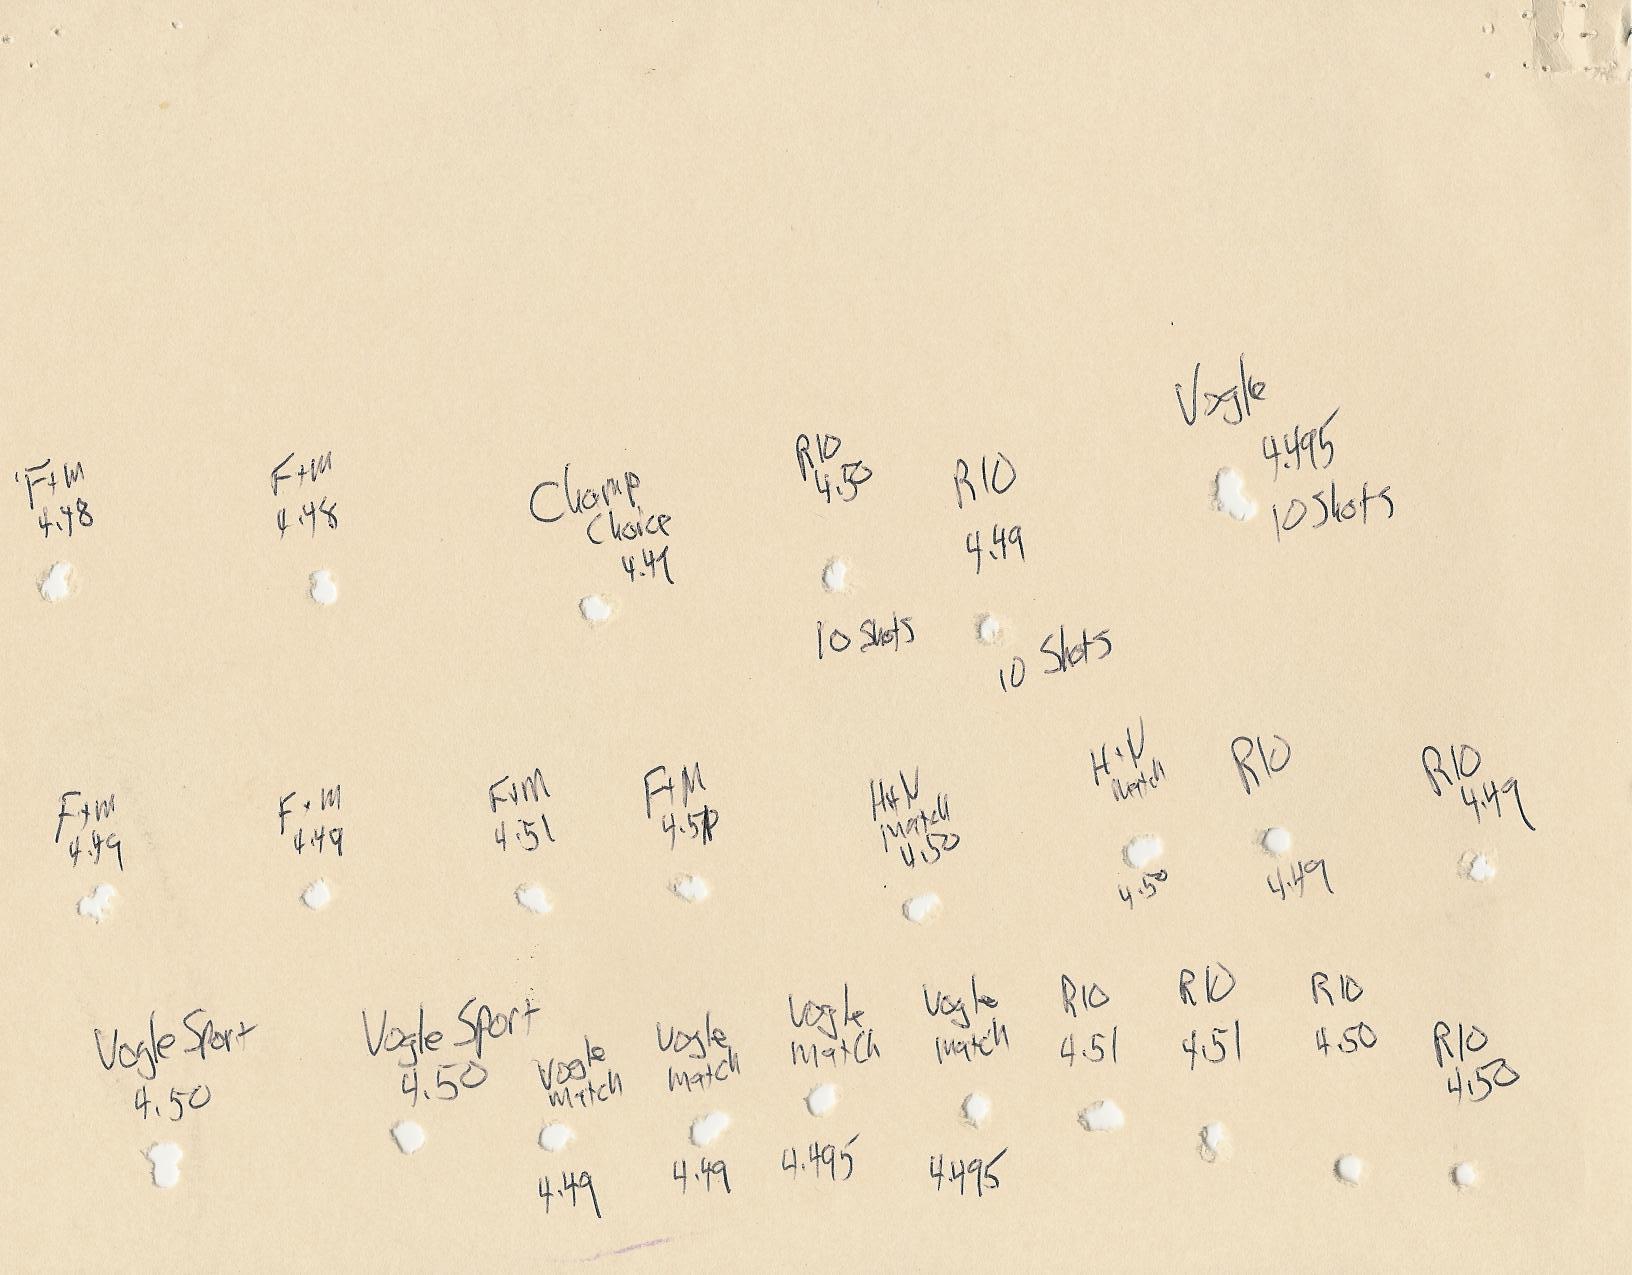 F+M
4.48
F+M
4.48
Champ
Choice
4.49
R10
4.50
10 Shots
R10
4.49
10 Shots
Vogle
4.495
10 Shots
F+M
4.49
F+M
4.49
F+M
4.51
F+M
H+N
Match
4.50
H+N
Match
4.50
R10
4.49
R10
4.49
Vogle Sport
4.50
Vogle Sport
4.50
Vogle
Match
4.49
Vogle
Match
4.49
Vogle
Match
4.495
Vogle
Match
4.495
R10
4.51
R10
4.51
R10
4.50
R10
4.50